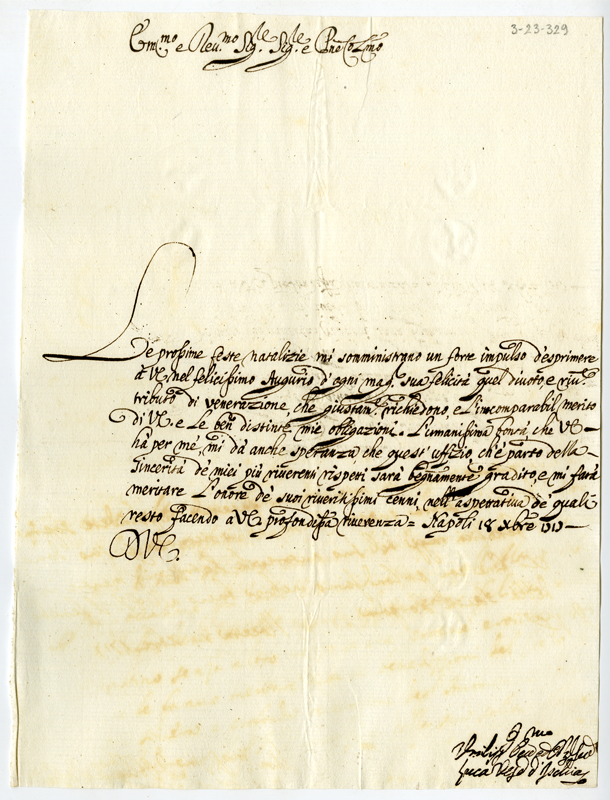 3-23-329
Em.mo e Reu.mo Sig.re Sig.re e Pne Col.mo
Le prossime feste natalizie mi somministrano un forte impulso d'esprimere
à VE nel felicissimo Augurio d'ogni mag.r sua felicità quel diuoto, e riu.te
tributo di venerazione, che giustam.te richiedono, e L'incomparabil merito
di VE e Le ben distinte mie obligazioni. L'umanissima bontà, che VE
hà per me, mi dà anche speranza che quest'uffizio, ch'è parto della
sincerità de miei più riuerenti rispetti sarà benignamente gradito, e mi farà
meritare L'onore de' suoi riueritissimi cenni, nell'aspettatiua de quali
resto facendo a VE profondissa riuerenza = Napoli 18 Xbre 1717
D VE
d'Ischia